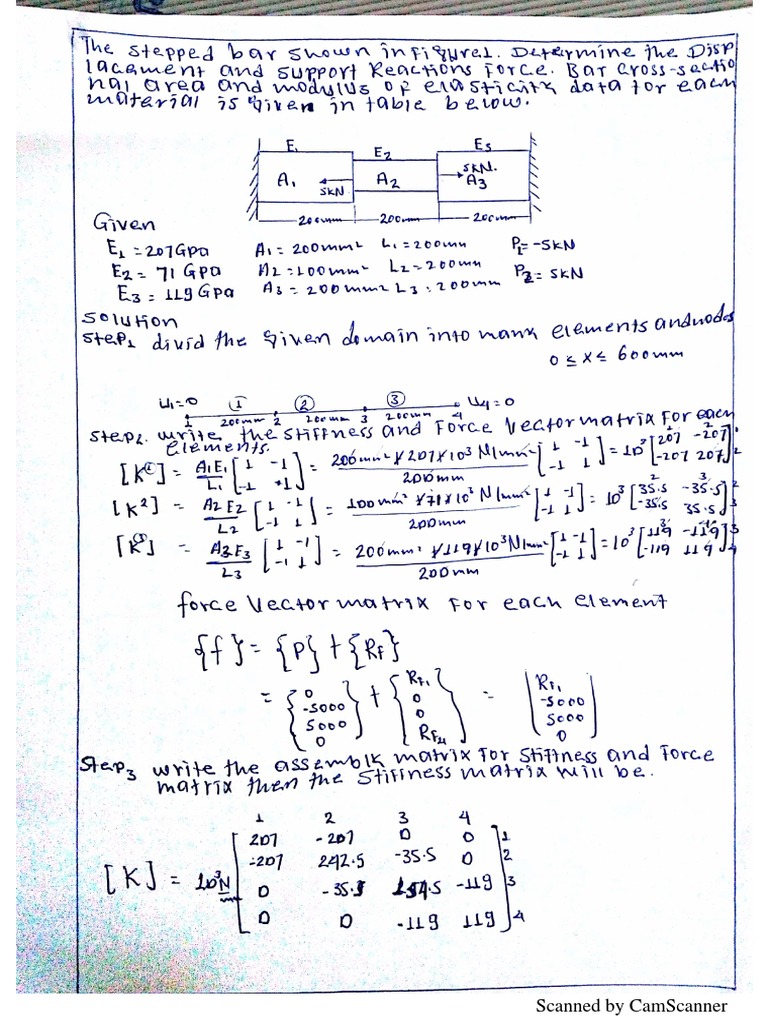 The stepped bar shown in figure1. Determine the Disp
lacement and support Reactions Force. Bar cross-sectio
nal area and modulus of elasticity data for each
material is given in table below.
E1 E2 E3
A1 5KN A2 5KN. A3
200mm 200mm 200mm
Given
E1 = 207Gpa A1 = 200mm² L1 = 200mm P1 = -5KN
E2 = 71 Gpa A2 = 100mm² L2 = 200mm P2 = 5KN
E3 = 119 Gpa A3 = 200mm² L3 = 200mm
Solution
Step1 divid the given domain into many elements and nodes
0 ≤ x ≤ 600mm
U1=0 ① ② ③ U4=0
1 200mm 2 200mm 3 200mm 4
Step2. write the stiffness and Force Vector matrix For each
Elements.
[K①] = A1E1/L1 [1 -1; -1 +1] = 200mm² * 207*10³ N/mm² / 200mm [1 -1; -1 1] = 10³ [207 -207; -207 207]
[K²] = A2E2/L2 [1 -1; -1 1] = 100mm² * 71*10³ N/mm² / 200mm [1 -1; -1 1] = 10³ [35.5 -35.5; -35.5 35.5]
[K③] = A3E3/L3 [1 -1; -1 1] = 200mm² * 119*10³ N/mm² / 200mm [1 -1; -1 1] = 10³ [119 -119; -119 119]
force Vector matrix For each element
{f} = {P} + {RF}
= {0; -5000; 5000; 0} + {RF1; 0; 0; RF4} = {RF1; -5000; 5000; 0}
Step3 write the assemblk matrix for stiffness and Force
matrix then the stiffness matrix will be.
1 2 3 4
207 -207 0 0 1
-207 242.5 -35.5 0 2
[K] = 10³N 0 -35.5 154.5 -119 3
0 0 -119 119 4
Scanned by CamScanner